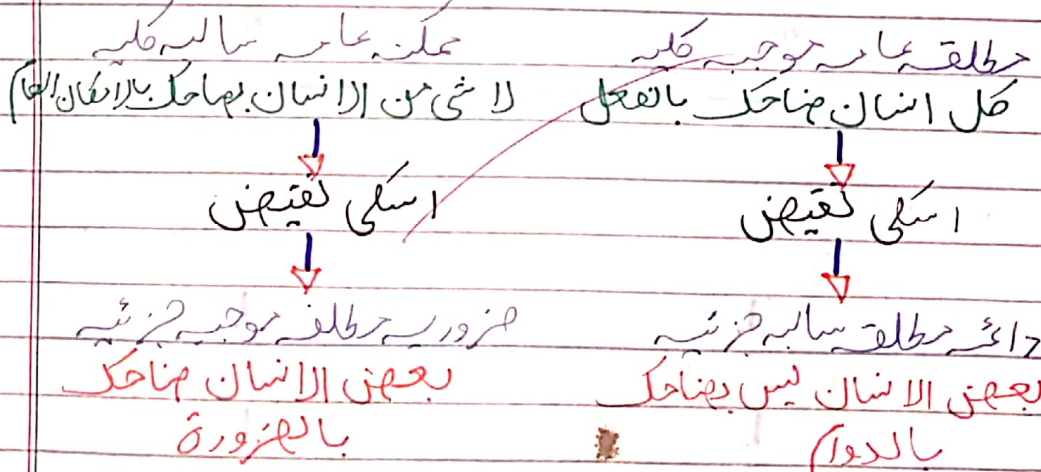 مطلقہ عامہ موجبہ کلیہ
کل انسان ضاحک بالفعل
اسکی نقیض
دائمہ مطلقہ سالبہ جزئیہ
بعض الانسان لیس بضاحک
بالدوام
ممکنہ عامہ سالبہ کلیہ
لا شئ من الانسان بضاحک بالامکان العام
اسکی نقیض
ضروریہ مطلقہ موجبہ جزئیہ
بعض الانسان ضاحک
بالضرورة